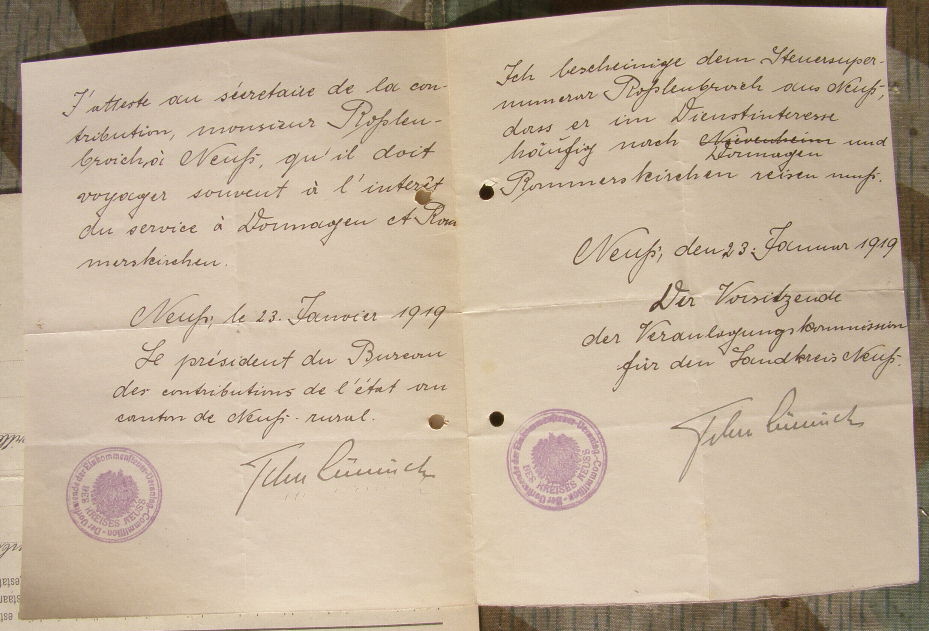 J'atteste au sécretaire de la con-
tribution, monsieur Roßlen-
broich, à Neuß, qu'il doit
voyager souvent à l'interêt
du service à Dormagen et Rom
merskirchen.
Neuß, le 23. Janvier 1919
Le président du Bureau
des contributions de l'état au
canton de Neuß-rural.
DES KREISES NEUSS
Ich bescheinige dem Steuersuper-
numerar Roßlenbroich aus Neuß,
dass er im Dienstinteresse
häufig nach Nievenheim und
Dormagen
Rommerskirchen reisen muß.
Neuß, den 23. Januar 1919
Der Vorsitzende
der Veranlagungskommission
für den Landkreis Neuß.
DES KREISES NEUSS